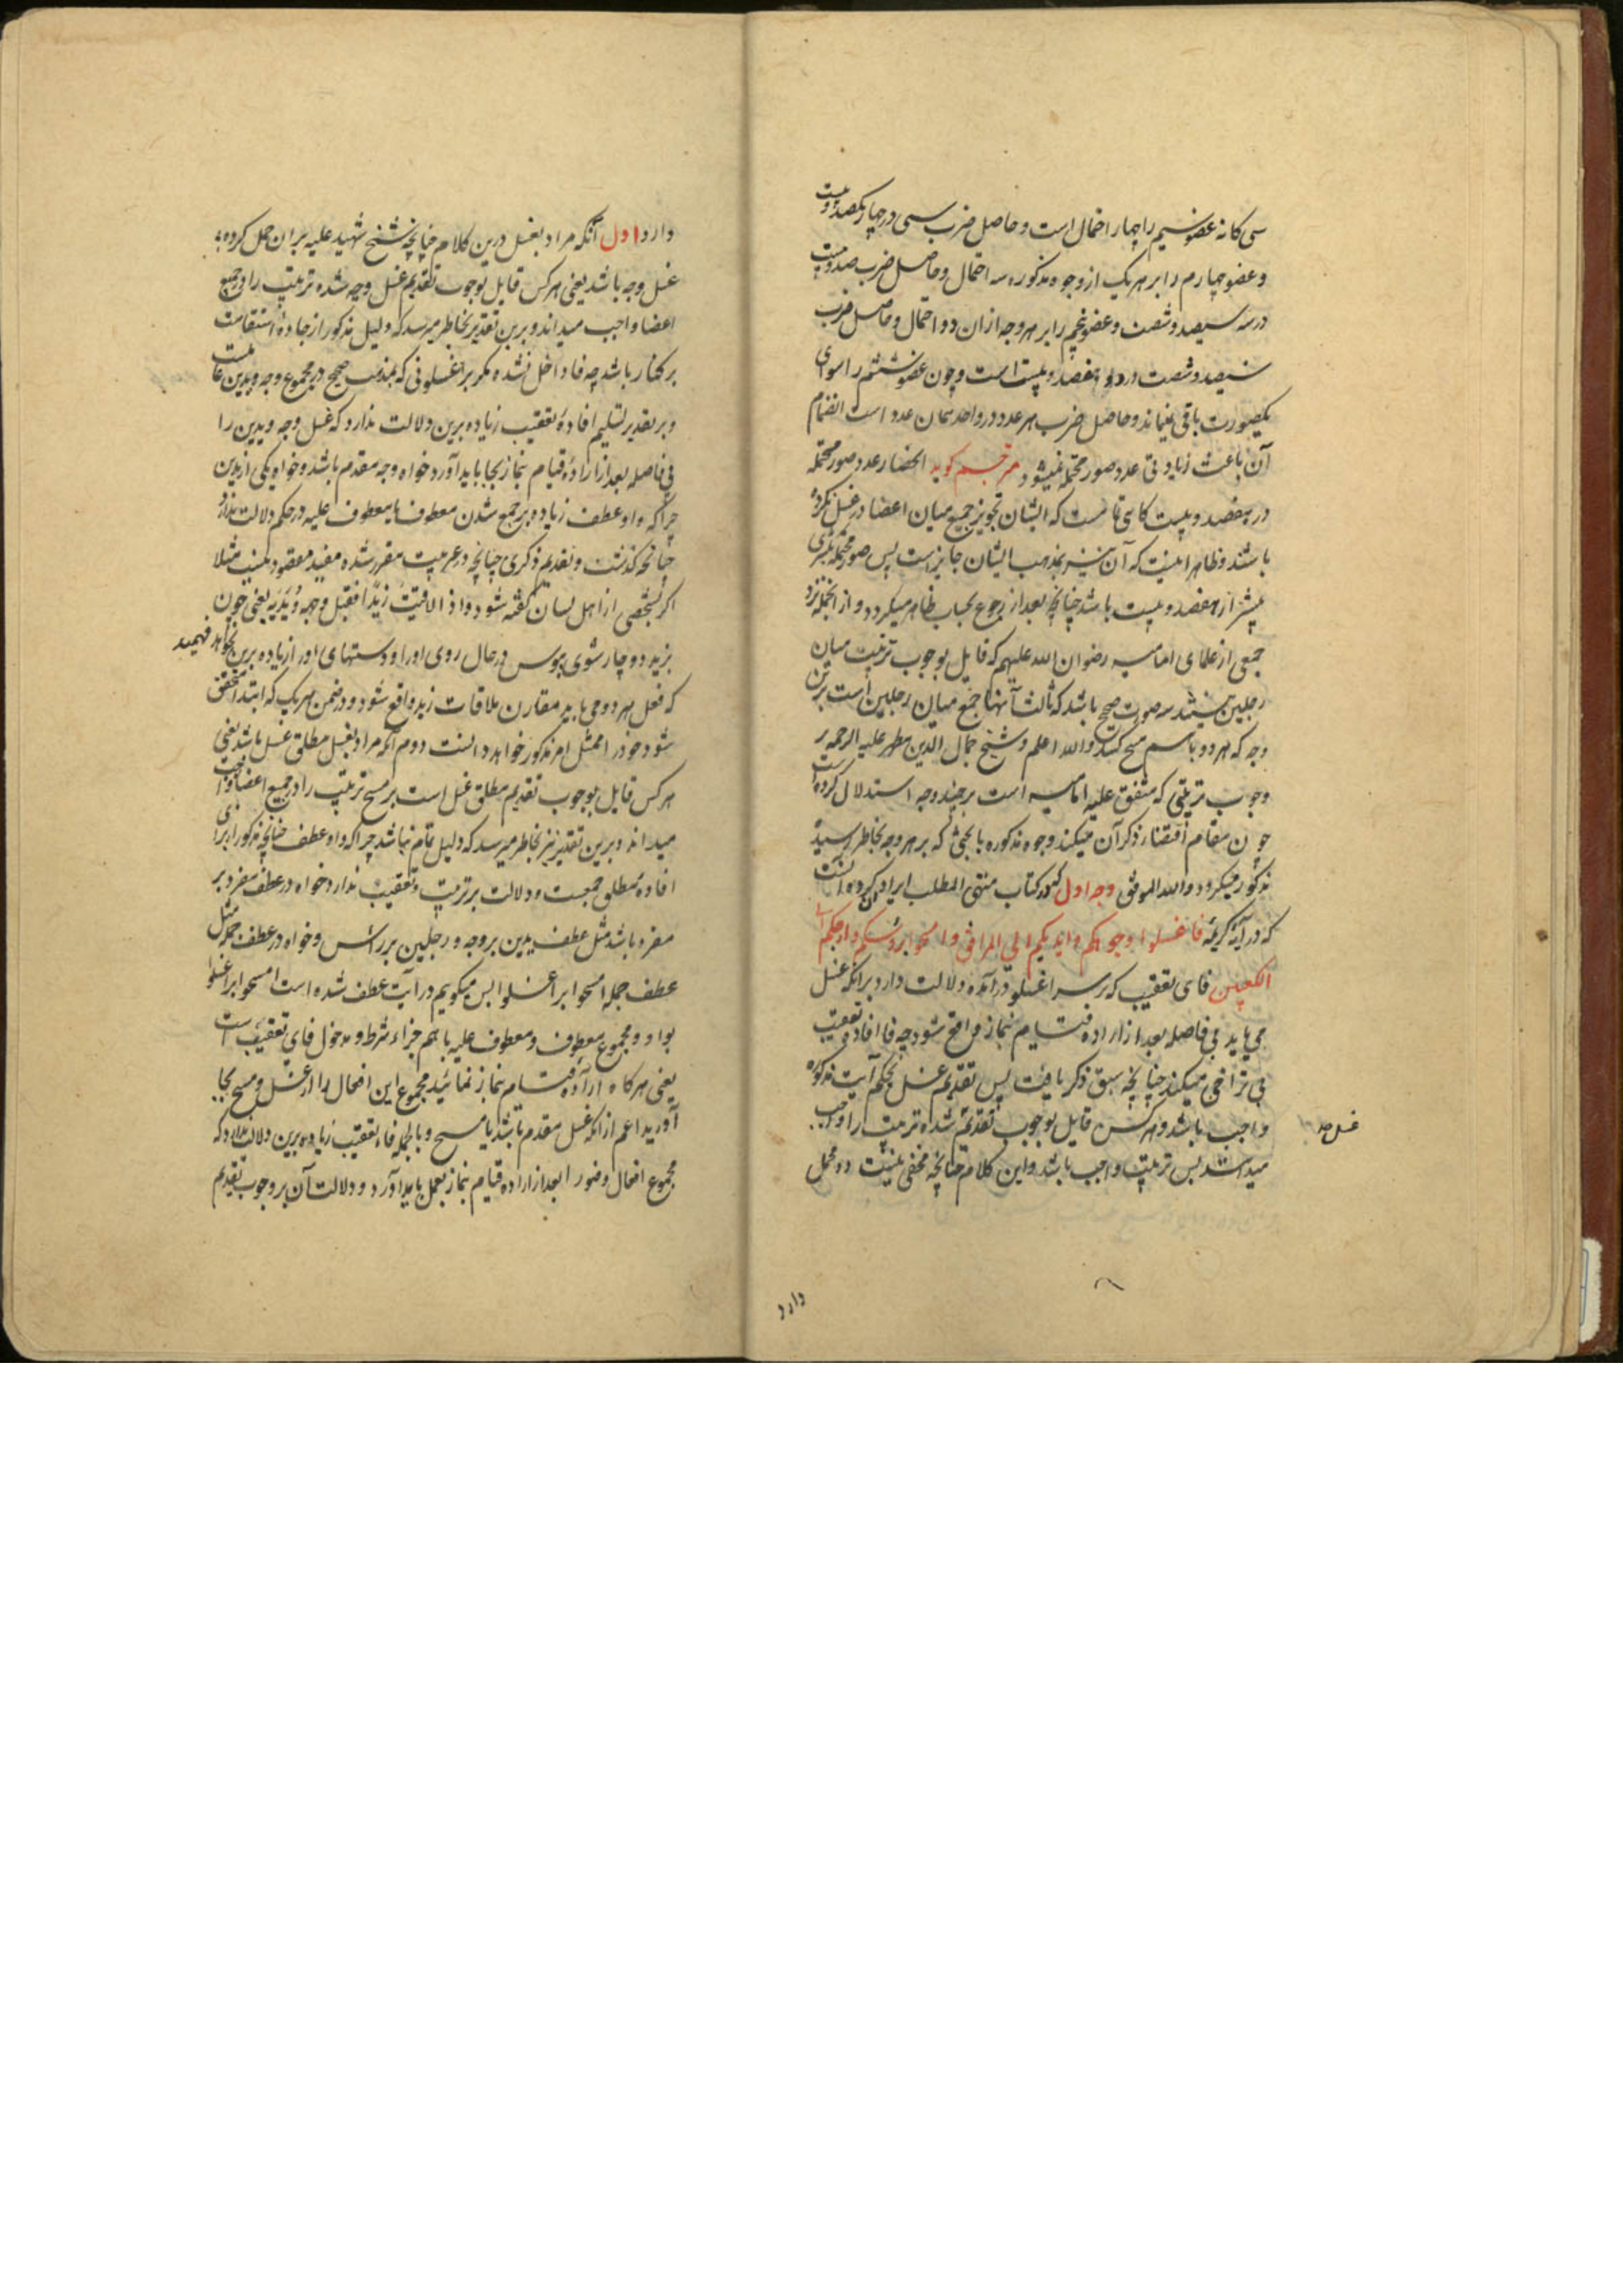 سی کانه عضو سیم را چهار احتمال است و حاصل ضرب سی در چهار یکصد و بیست
و عضو چهارم را بر هر یک از وجوه مذکوره سه احتمال و حاصل ضرب صد و بیست
در سه سیصد و شصت و عضو پنجم را بر هر وجه ازان دو احتمال و حاصل ضرب
سیصد و شصت در دو هفصد و بیست است و چون عضو ششم را سوای
یکصورت باقی نمیماند و حاصل ضرب هر عدد در واحد همان عدد است انضمام
آن باعث زیادتی عدد صور محتمله نمیشود مترجم کوید انحصار عدد صور محتمله
در هفصد و بیست کاهی تمامست که ایشان تجویز جمع میان اعضا در غسل نکرده
باشند و ظاهرا اینست که آن نیز بمذهب ایشان جایز است پس صور محتمله
بیشتر از هفصد و بیست باشد چنانچه بعد از رجوع بحساب ظاهر میکردد و از انجمله نزد
جمعی از علمای امامیه رضوان الله علیهم که قایل بوجوب ترتیب میان
رجلین نیستند سه صورت صحیح باشد که ثالث آنها جمع میان رجلین است برین
وجه که هر دو را با هم مسح کنند و الله اعلم و شیخ جمال الدین مطهر علیه الرحمه بر
وجوب ترتیبی که متفق علیه امامیه است بر چند وجه استدلال کرده است
چون مقام اقتضاء ذکر آن میکند وجوه مذکوره با بحثی که بر هر وجه بخاطر رسیده
مذکور میکردد و الله الموفق وجه اول که در کتاب منتهی المطلب ایراد کرده آنست
که در آیه کریمه فاغسلوا وجوهکم و ایدیکم الی المرافق و امسحوا برؤسکم و ارجلکم الی
الکعبین فای تعقیب که بر سر اغسلوا درآمده دلالت دارد بر انکه غسل
می باید بی فاصله بعد از اراده قیام نماز واقع شود چه فا افاده تعقیب
بی تراخی میکند چنانچه سبق ذکر یافت پس تقدیم غسل بحکم آیت مذکوره
واجب باشد و هر کس قایل بوجوب تقدیم شده ترتیب را واجب
میداند پس ترتیب واجب باشد و این کلام چنانچه مخفی نیست دو محمل
دارد
دارد اول آنکه مراد بغسل درین کلام چنانچه شیخ شهید علیه بران حمل کرده
غسل وجه باشد یعنی هر کس قایل بوجوب تقدیم غسل وجه شده ترتیب را در جمیع
اعضا واجب میداند و برین تقدیر بخاطر میرسد که دلیل مذکور از جاده استقامت
بر کنار باشد چه فا داخل نشده مکر بر اغسلوا
و بر تقدیر تسلیم افاده تعقیب زیاده برین دلالت ندارد که غسل وجه و یدین را
بی فاصله بعد از اراده قیام نماز بجا باید آورد خواه وجه مقدم باشد و خواه یکی از یدین
چرا که واو عطف زیاده بر جمع شدن معطوف با معطوف علیه در حکم دلالت ندارد
چنانچه کذشت و تقدیم ذکری چنانچه در عربیت مقرر شده مفید مقصود نیست مثلا
اکر بشخصی از اهل لسان کفته شود و اذا لاقیت زیدا فقبل وجهه و یدیه یعنی چون
بزید دوچار شوی ببوس در حال روی او را و دستهای او را زیاده برین نخواهد فهمید
که فعل هر دو می باید مقارن ملاقات زید واقع شود و در ضمن هر یک که ابتدا متحقق
شود خود را ممتثل امر مذکور خواهد دانست دوم آنکه مراد بغسل مطلق غسل باشد یعنی
هر کس قایل بوجوب تقدیم مطلق غسل است بر مسح ترتیب را در جمیع اعضا واجب
میداند و برین تقدیر نیز بخاطر میرسد که دلیل تمام نباشد چرا که واو عطف چنانچه مذکور شد برای
افاده مطلق جمعیست و دلالت بر ترتیب و تعقیب ندارد خواه در عطف مفرد بر
مفرد باشد مثل عطف یدین بر وجه و رجلین بر رأس و خواه در عطف جمله مثل
عطف جمله امسحوا بر اغسلوا پس میکویم در آیت عطف شده است امسحوا بر اغسلوا
بواو و مجموع معطوف و معطوف علیه با هم جزاء شرط و مدخول فای تعقیب است
یعنی هر کاه اراده قیام نماز نمائید مجموع این افعال را از غسل و مسح بجا
آورید اعم از انکه غسل مقدم باشد یا مسح و بالجمله فاء تعقیب زیاده برین دلالت ندارد که
مجموع افعال وضو را بعد از اراده قیام نماز بعمل باید آورد و دلالت آن بر وجوب تقدیم